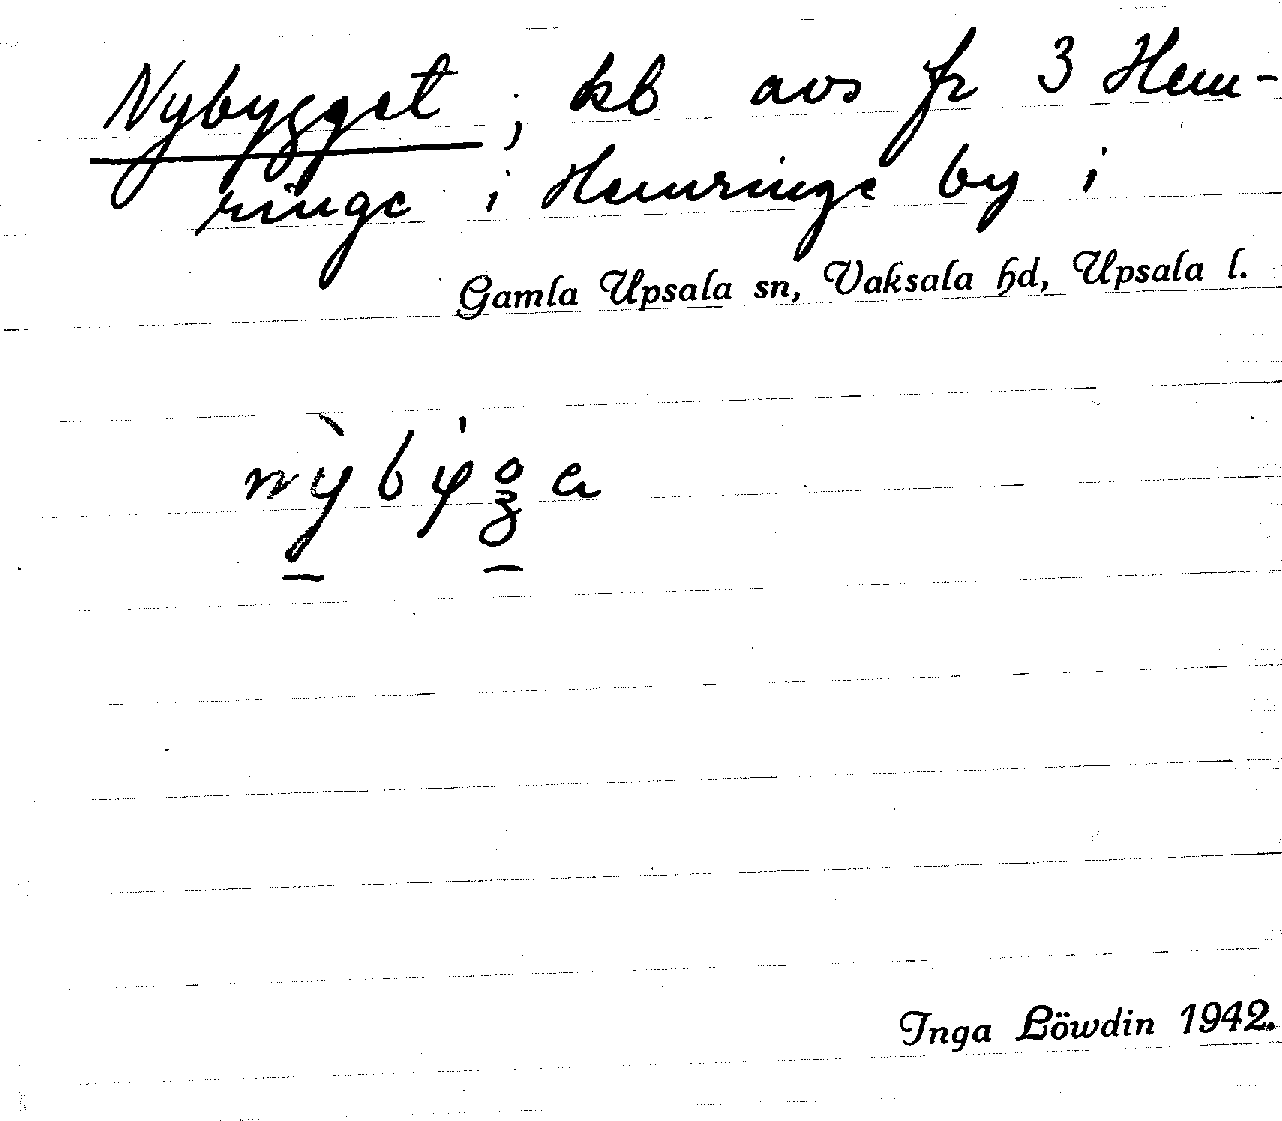 Nybygget, kb avs fr 3 Hem-
ringe i Hemringe by i
Gamla Upsala sn, Vaksala hd, Upsala l.
Inga Löwdin 1942.